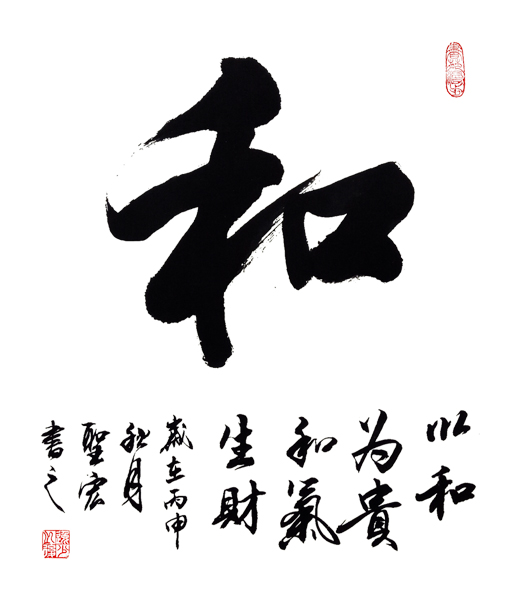 和
以和
为貴
和氣
生財
歳在丙申
秋月
聖宏
書之